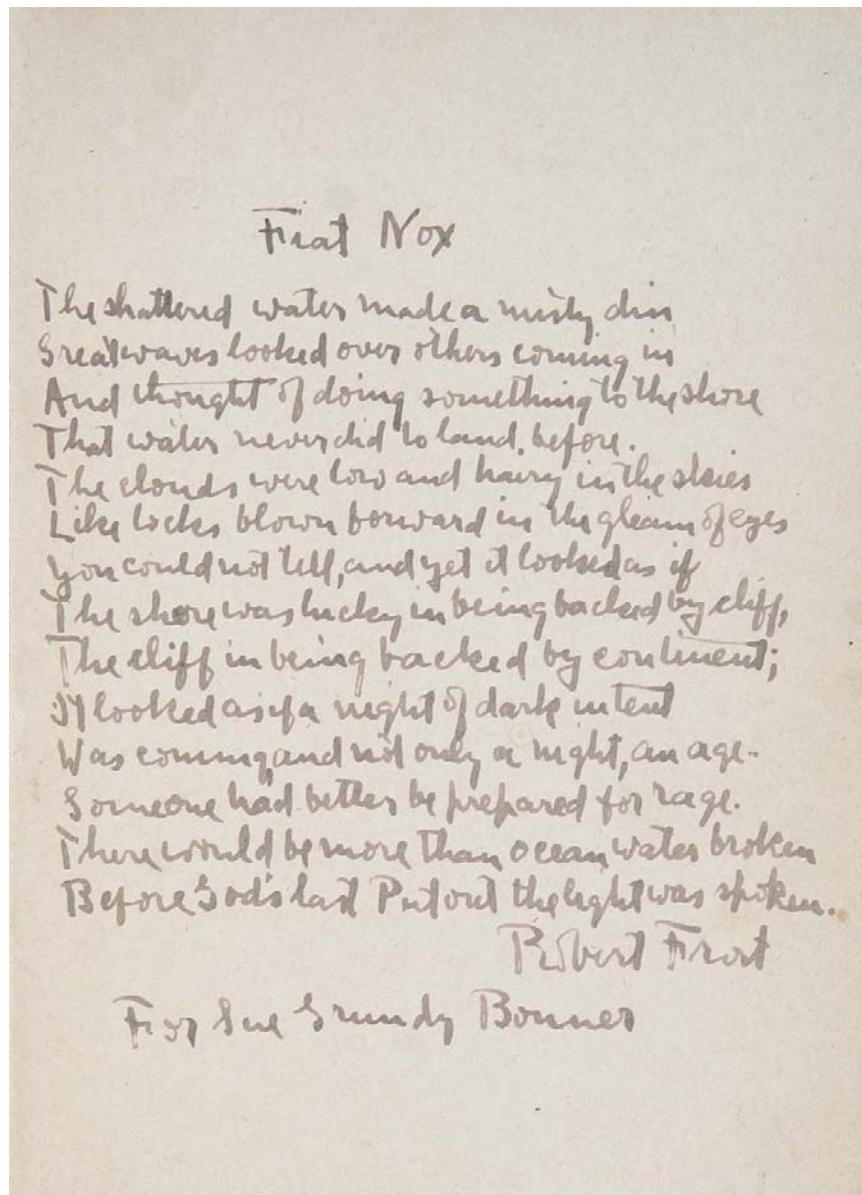 Fiat Nox
The shattered water made a misty din
Great waves looked over others coming in
And thought of doing something to the shore
That water never did to land before.
The clouds were low and hairy in the skies
Like locks blown forward in the gleam of eyes
You could not tell, and yet it looked as if
The shore was lucky in being backed by cliff,
The cliff in being backed by continent;
It looked as if a night of dark intent
Was coming, and not only a night, an age.
Someone had better be prepared for rage.
There would be more than ocean water broken
Before God's last Put out the light was spoken.
Robert Frost
For Sue Grundy Bonner